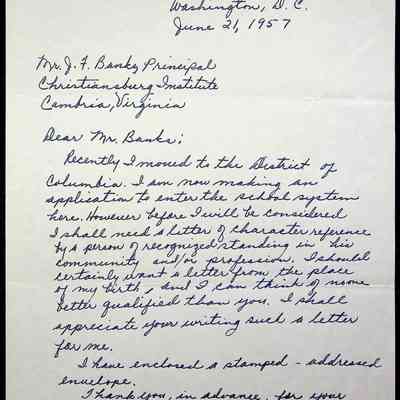 Washington, D.C.
June 21, 1957
Mr. J. F. Banks, Principal
Christiansburg Institute
Cambria, Virginia
Dear Mr. Banks:
Recently I moved to the District of
Columbia. I am now making an
application to enter the school system
here. However before I will be considered
I shall need a letter of character reference
by a person of recognized standing in his
community and/or profession. I should
certainly want a letter from the place
of my birth, and I can think of no one
better qualified than you. I shall
appreciate your writing such a letter
for me.
I have enclosed a stamped - addressed
envelope.
Thank you, in advance, for your